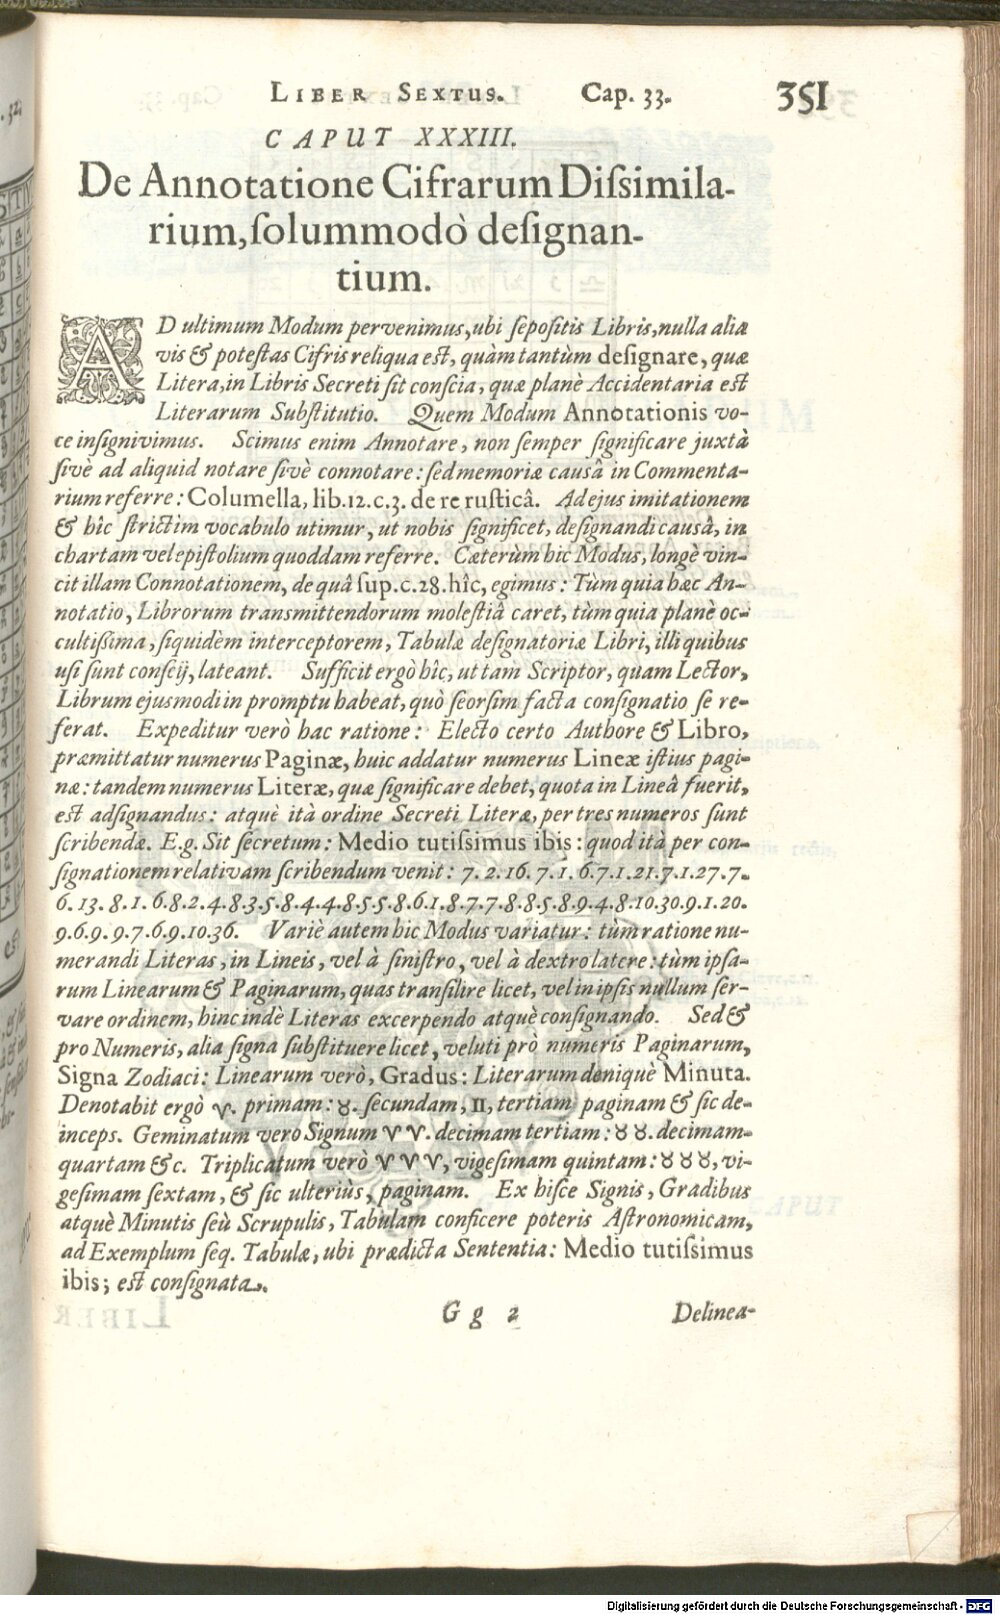 LIBER SEXTUS. Cap. 33. 351
CAPUT XXXIII.
De Annotatione Cifrarum Diſsimila-
rium, ſolummodò deſignan-
tium.
AD ultimum Modum pervenimus, ubi ſepoſitis Libris, nulla alia
vis & poteſtas Cifris reliqua eſt, quàm tantùm deſignare, quæ
Litera, in Libris Secreti ſit conſcia, quæ planè Accidentaria eſt
Literarum Subſtitutio. Quem Modum Annotationis vo-
ce inſignivimus. Scimus enim Annotare, non ſemper ſignificare juxtà
ſivè ad aliquid notare ſivè connotare: ſed memoriæ causâ in Commenta-
rium referre: Columella, lib.12.c.3. de re ruſticâ. Ad ejus imitationem
& hîc ſtrictim vocabulo utimur, ut nobis ſignificet, deſignandi causâ, in
chartam vel epiſtolium quoddam referre. Cæterùm hic Modus, longè vin-
cit illam Connotationem, de quâ ſup.c.28.hîc, egimus: Tùm quia hæc An-
notatio, Librorum transmittendorum moleſtiâ caret, tùm quia planè oc-
cultiſsima, ſiquidèm interceptorem, Tabulæ deſignatoriæ Libri, illi quibus
uſi ſunt conſcij, lateant. Sufficit ergò hîc, ut tam Scriptor, quam Lector,
Librum ejusmodi in promptu habeat, quò ſeorſim facta conſignatio ſe re-
ferat. Expeditur verò hac ratione: Electo certo Authore & Libro,
præmittatur numerus Paginæ, huic addatur numerus Lineæ iſtius pagi-
næ: tandem numerus Literæ, quæ ſignificare debet, quota in Lineâ fuerit,
eſt adſignandus: atquè ità ordine Secreti Literæ, per tres numeros ſunt
ſcribendæ. E.g. Sit ſecretum: Medio tutiſsimus ibis: quod ità per con-
ſignationem relativam ſcribendum venit: 7.2.16.7.1.6.7.1.21.7.1.27.7.
6.13.8.1.6.8.2.4.8.3.5.8.4.4.8.5.5.8.6.1.8.7.7.8.8.5.8.9.4.8.10.30.9.1.20.
9.6.9.9.7.6.9.10.36. Variè autem hic Modus variatur: tùm ratione nu-
merandi Literas, in Lineis, vel à ſiniſtro, vel à dextro latere: tùm ipſa-
rum Linearum & Paginarum, quas tranſilire licet, vel in ipſis nullum ſer-
vare ordinem, hinc indè Literas excerpendo atquè conſignando. Sed &
pro Numeris, alia ſigna ſubſtituere licet, veluti prò numeris Paginarum,
Signa Zodiaci: Linearum verò, Gradus: Literarum deniquè Minuta.
Denotabit ergò ♈. primam: ♉. ſecundam, ♊, tertiam paginam & ſic de-
inceps. Geminatum vero Signum ♈ ♈. decimam tertiam: ♉ ♉. decimam-
quartam &c. Triplicatum verò ♈ ♈ ♈, vigeſimam quintam: ♉ ♉ ♉, vi-
geſimam ſextam, & ſic ulteriùs, paginam. Ex hiſce Signis, Gradibus
atquè Minutis ſeù Scrupulis, Tabulam conficere poteris Aſtronomicam,
ad Exemplum ſeq. Tabulæ, ubi prædicta Sententia: Medio tutiſsimus
ibis; eſt conſignata.
Gg 2 Delinea-
Digitalisierung gefördert durch die Deutsche Forschungsgemeinschaft - DFG